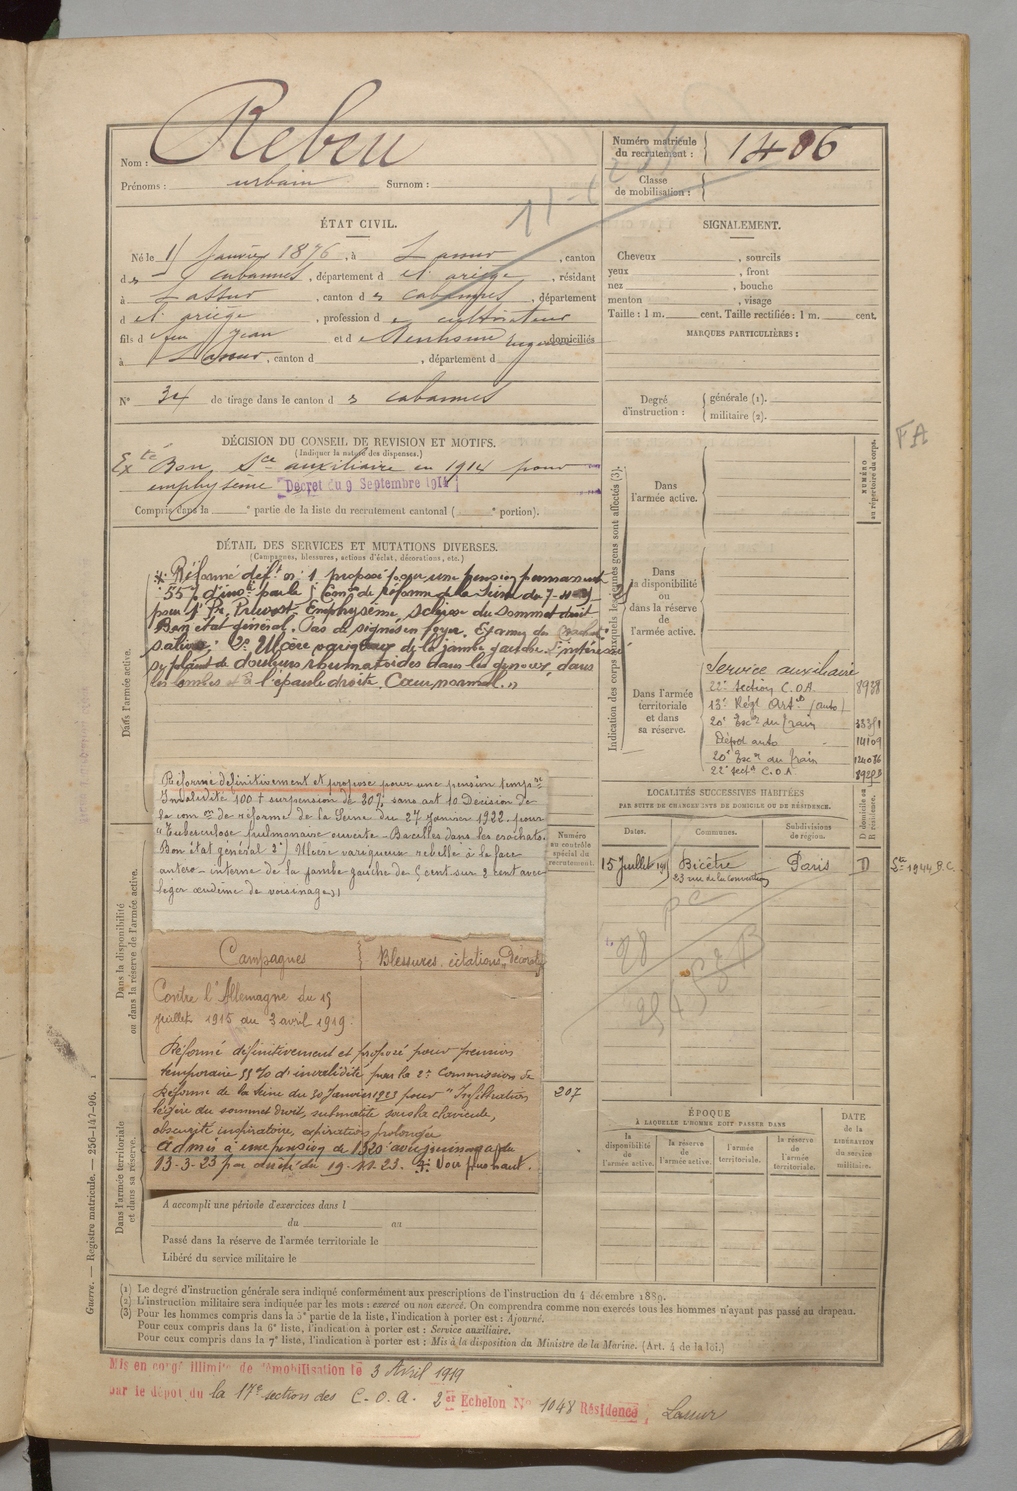 Nom : Rebeu
Prénoms : urbain Surnom :
Numéro matricule du recrutement : 1486
Classe de mobilisation :
ÉTAT CIVIL.
Né le 1 Janvier 1876, à Lassur, canton
des cabannes, département de l'ariège, résidant
à Lassur, canton des cabannes, département
de l'ariège, profession de cultivateur
fils de feu Jean et de domiciliés
à Lassur, canton d , département d
N° 34 de tirage dans le canton des cabannes
SIGNALEMENT.
Cheveux , sourcils
yeux , front
nez , bouche
menton , visage
Taille : 1 m. cent. Taille rectifiée : 1 m. cent.
MARQUES PARTICULIÈRES :
Degré d'instruction : générale (1).
militaire (2).
DÉCISION DU CONSEIL DE REVISION ET MOTIFS.
(Indiquer la nature des dispenses.)
Bon Sce auxiliaire en 1914 pour
emphysème Décret du 9 Septembre 1914
Compris dans la e partie de la liste du recrutement cantonal ( e portion).
DÉTAIL DES SERVICES ET MUTATIONS DIVERSES.
(Campagnes, blessures, actions d'éclat, décorations, etc.)
Dans l'armée active.
Réformé déf.t n: 1 proposé pour une pension permanente
55% d'inv.té par la Com.on de réforme de la Seine du 7-11-
pour 1° Emphysème, sclérose du sommet droit
Bon état général. Pas de signes en foyer. Examen des crachats
2° Ulcère variqueux de la jambe gauche. L'intéressé
se plaint de douleurs rhumatoïdes dans les genoux, dans
les et à l'épaule droite. Cœur normal. »
Réformé définitivement et proposé pour une pension temp.re
Invalidité 100 + surpension de 20% sans art 10. Décision de
la com.on de réforme de la Seine du 27 Janvier 1922 pour
"Tuberculose pulmonaire ouverte - Bacilles dans les crachats.
Bon état général 2°) Ulcère variqueux rebelle à la face
antéro-interne de la jambe gauche de 5 cent sur 2 cent avec
léger œdème de voisinage"
Dans la disponibilité ou dans la réserve de l'armée active.
Campagnes
Blessures, citations, Décorat.
Contre l'Allemagne du 15
juillet 1915 au 3 avril 1919.
Réformé définitivement et proposé pour pension
temporaire 55% d'invalidité par la 2e Commission de
Réforme de la Seine du 30 Janvier 1923 pour "Infiltration
légère du sommet droit, submatité sous la clavicule,
obscurité inspiratoire, expiration prolongée
Admis à une pension de 1320 avec jouissance du
13-3-23 par arrêté du 19-11-23. Voir plus haut.
Dans l'armée territoriale et dans sa réserve.
A accompli une période d'exercices dans l
du au
Passé dans la réserve de l'armée territoriale le
Libéré du service militaire le
Indication des corps auxquels les jeunes gens sont affectés (3).
Dans l'armée active.
Dans la disponibilité ou dans la réserve de l'armée active.
Dans l'armée territoriale et dans sa réserve.
NUMÉRO au répertoire du corps.
FA
Service auxiliaire
22e Section C.O.A. 8938
13e Régt Art.ie (auto)
20e Esc.on du train
Dépôt auto 14109
20e Esc.on du train
22e sect.n C.O.A.
LOCALITÉS SUCCESSIVES HABITÉES
PAR SUITE DE CHANGEMENTS DE DOMICILE OU DE RÉSIDENCE.
Numéro au contrôle spécial du recrutement.
Dates. Communes. Subdivisions de région. D domicile ou R résidence.
15 Juillet Bicêtre Paris D
23 rue de la Convention
207
ÉPOQUE
À LAQUELLE L'HOMME DOIT PASSER DANS
la disponibilité de l'armée active.
la réserve de l'armée active.
l'armée territoriale.
la réserve de l'armée territoriale.
DATE de la LIBÉRATION du service militaire.
Guerre. — Registre matricule. — 256-147-96. 1
(1) Le degré d'instruction générale sera indiqué conformément aux prescriptions de l'instruction du 4 décembre 1889.
(2) L'instruction militaire sera indiquée par les mots : exercé ou non exercé. On comprendra comme non exercés tous les hommes n'ayant pas passé au drapeau.
(3) Pour les hommes compris dans la 5e partie de la liste, l'indication à porter est : Ajourné.
Pour ceux compris dans la 6e liste, l'indication à porter est : Service auxiliaire.
Pour ceux compris dans la 7e liste, l'indication à porter est : Mis à la disposition du Ministre de la Marine. (Art. 4 de la loi.)
Mis en congé illimité de démobilisation le 3 Avril 1919
par le dépôt du la 17e section des C.O.A. 2er Echelon N° 1048 Résidence, Lassur